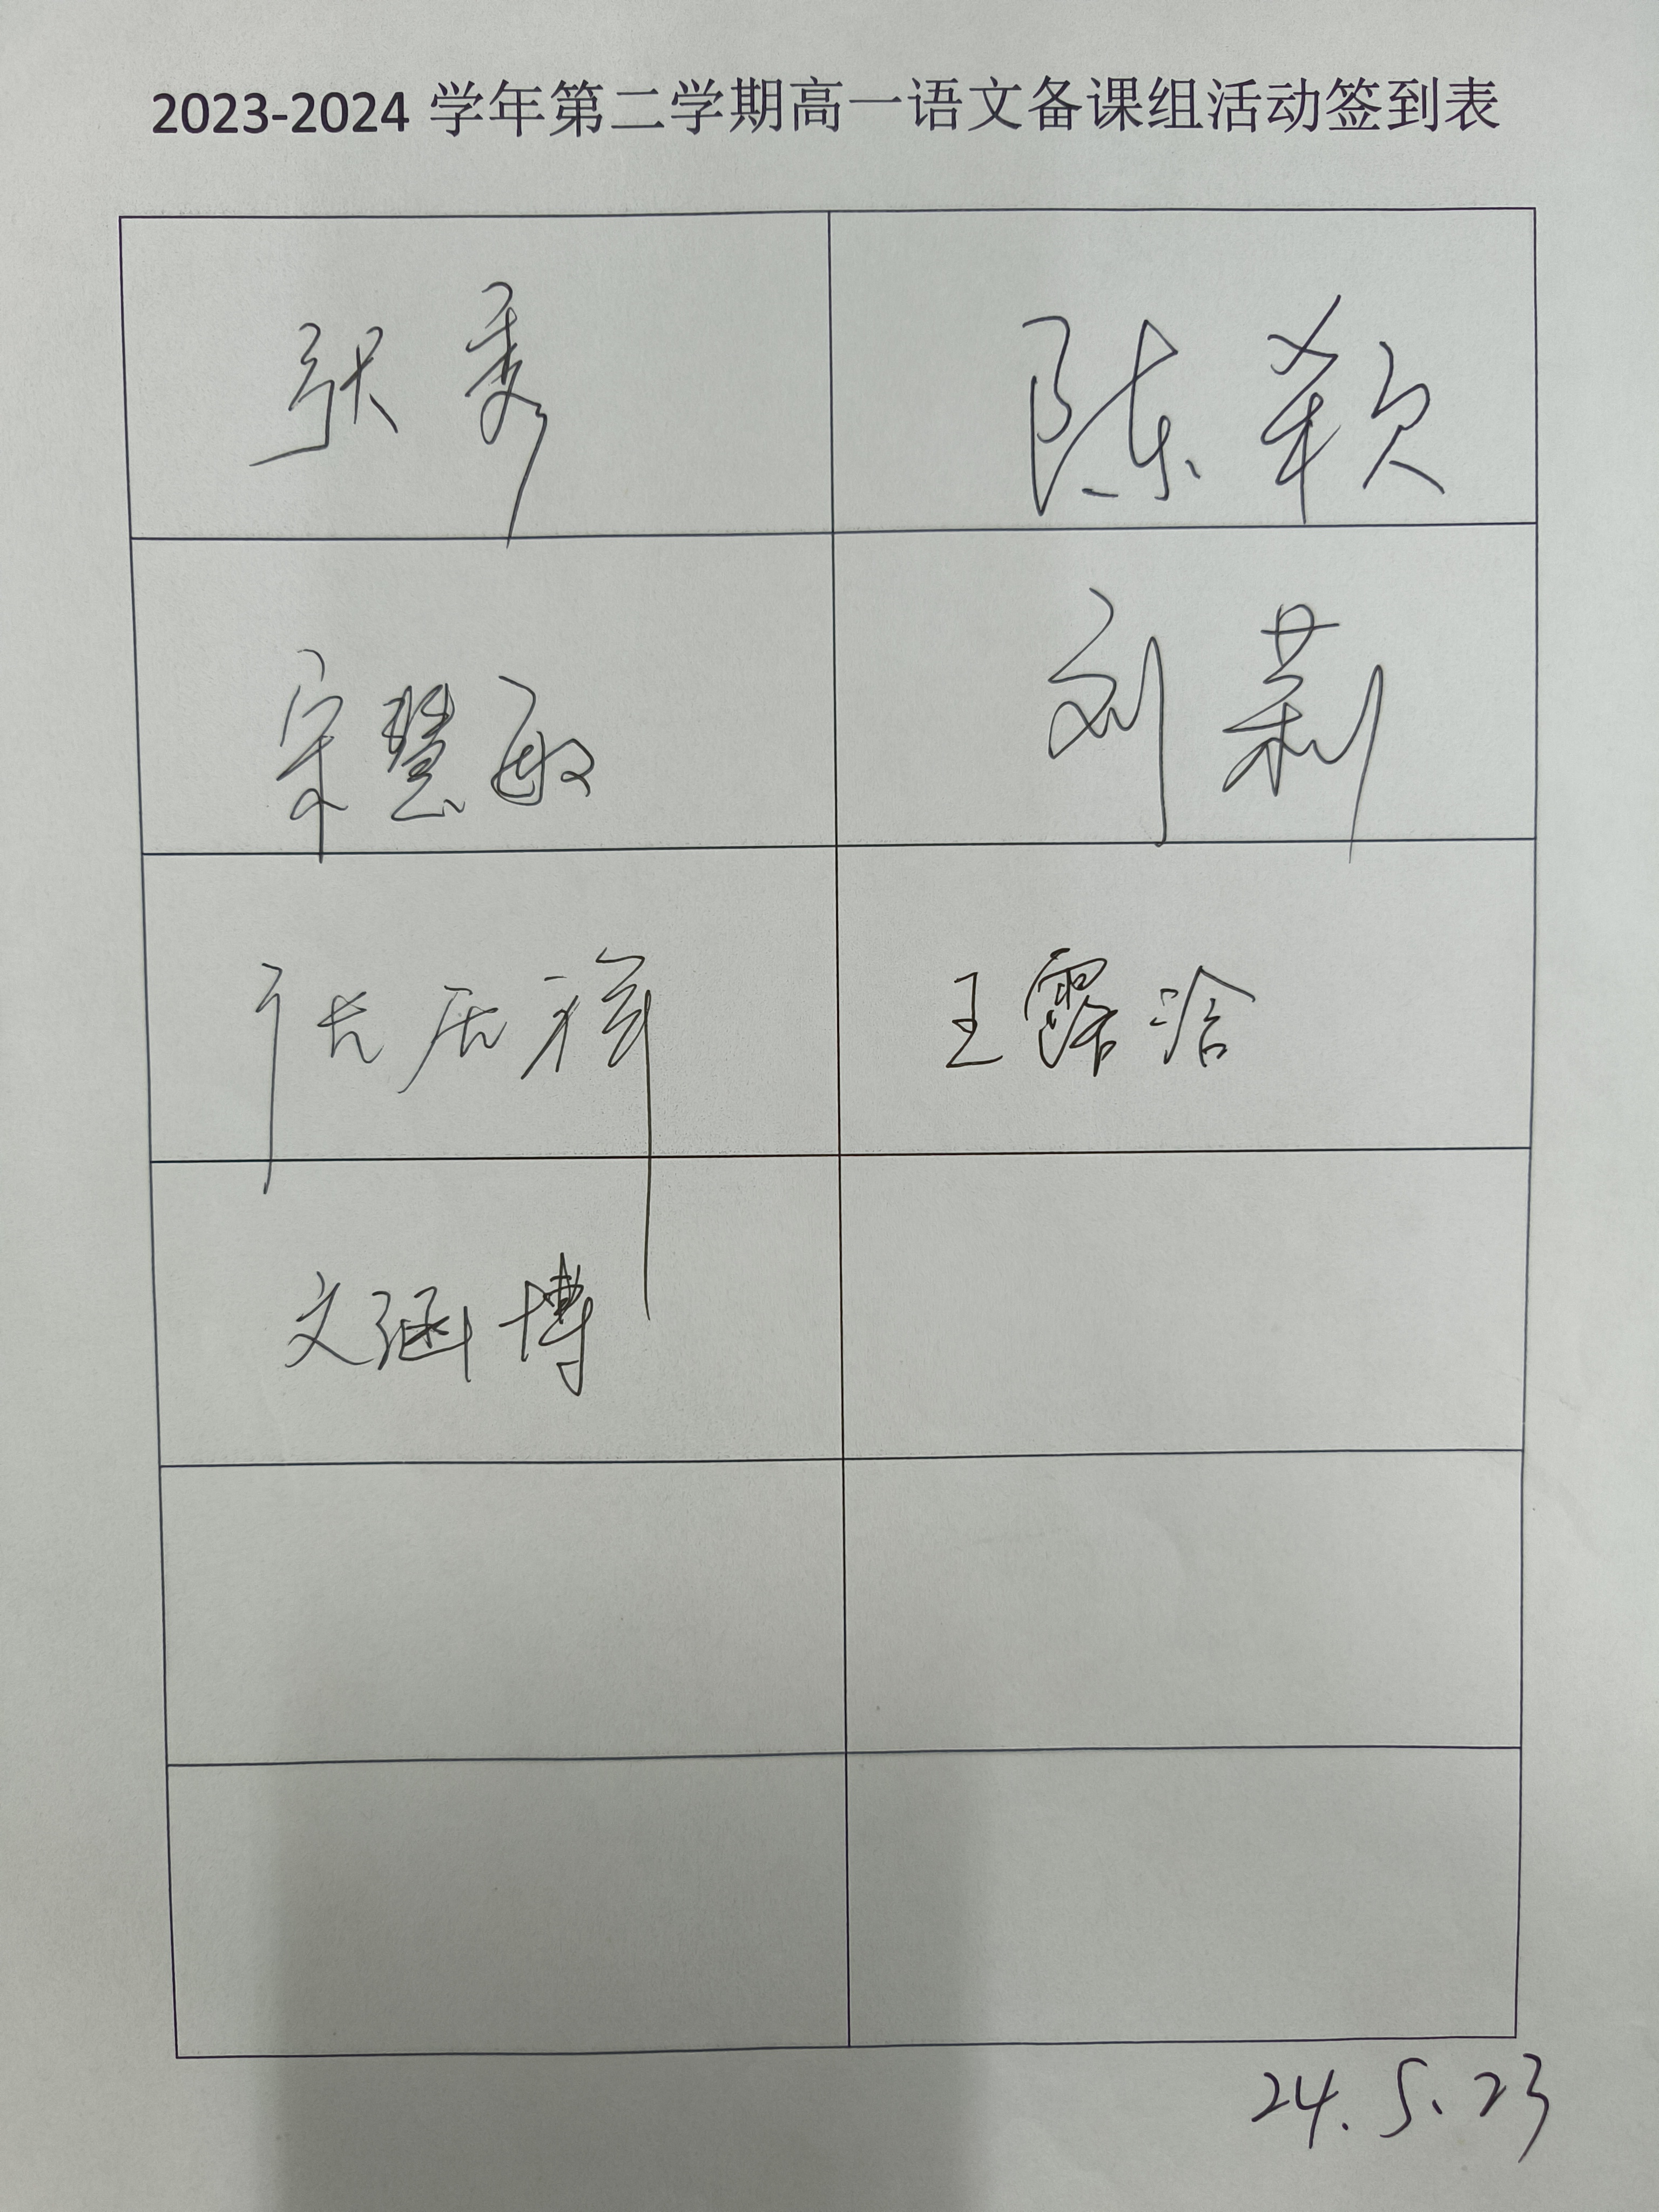 2023-2024 学年第二学期高一语文备课组活动签到表
张秀 陈颖
宋慧敏 刘莉
张 祥 王露洽
文涵博
24.5.23